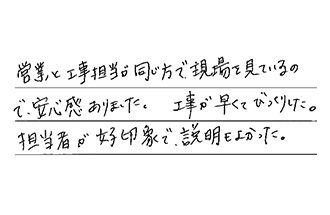 営業と工事担当が同じ方で、現場を見ているの
で、安心感ありました。 工事が早くてびっくりした。
担当者が好印象で、説明もよかった。